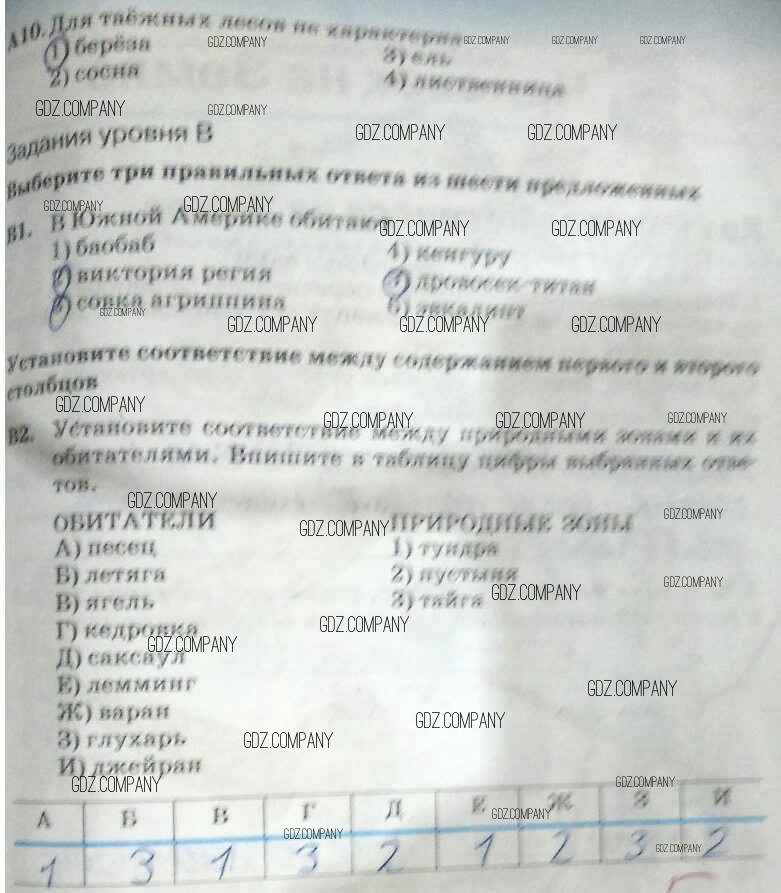 А10. Для таёжных лесов не характерна
1) берёза 3) ель
2) сосна 4) лиственница
Задания уровня В
Выберите три правильных ответа из шести предложенных
В1. В Южной Америке обитают
1) баобаб 4) кенгуру
2) виктория регия 5) дровосек-титан
3) совка агриппина 6) эвкалипт
Установите соответствие между содержанием первого и второго
столбцов
В2. Установите соответствие между природными зонами и их
обитателями. Впишите в таблицу цифры выбранных отве-
тов.
ОБИТАТЕЛИ ПРИРОДНЫЕ ЗОНЫ
А) песец 1) тундра
Б) летяга 2) пустыня
В) ягель 3) тайга
Г) кедровка
Д) саксаул
Е) лемминг
Ж) варан
З) глухарь
И) джейран
А Б В Г Д Е Ж З И
1 3 1 3 2 1 2 3 2
GDZ.COMPANY